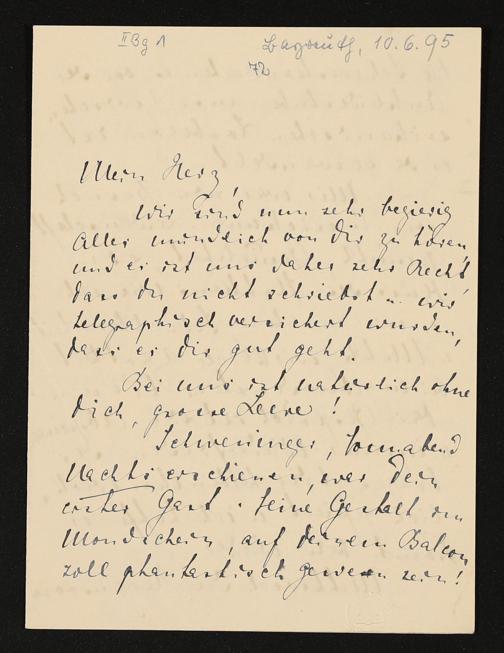 II Bg 1
Bayreuth, 10.6.95
72
Mein Herz,
Wir sind nun sehr begierig
Alles mündlich von dir zu hören,
und es ist uns daher sehr Recht,
dass du nicht schriebst u. wir
telegraphisch versichert wurden,
dass es dir gut geht.
Bei uns ist natürlich ohne
dich, grosse Leere!
Schweninger, Sonnabend
Nachts erschienen, war dein
erster Gast. Seine Gestalt im
Mondschein, auf deinem Balcon
soll phantastisch gewesen sein!